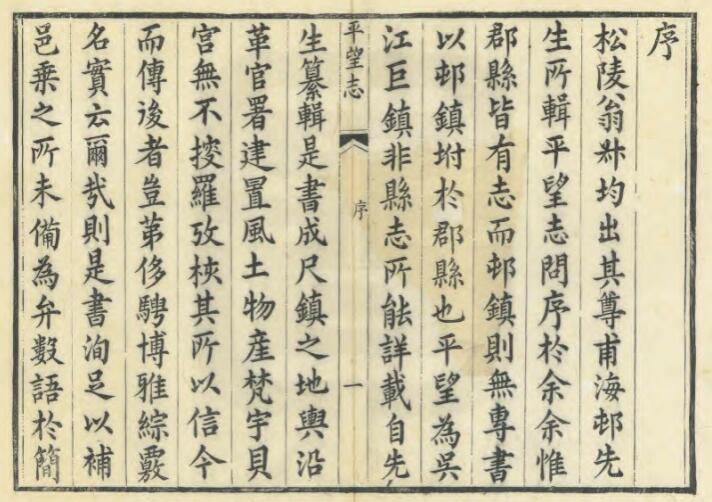 序
松陵翁尗均出其尊甫海邨先
生所輯平望志問序於余余惟
郡縣皆有志而邨鎮則無專書
以邨鎮坿於郡縣也平望為吳
江巨鎮非縣志所能詳載自先
平望志 序 一
生纂輯是書成尺鎮之地輿沿
革官署建置風土物産梵宇貝
宮無不搜羅攷核其所以信今
而傳後者豈苐侈騁博雅綜覈
名實云爾㢤則是書洵足以補
邑乗之所未備為弁數語於簡